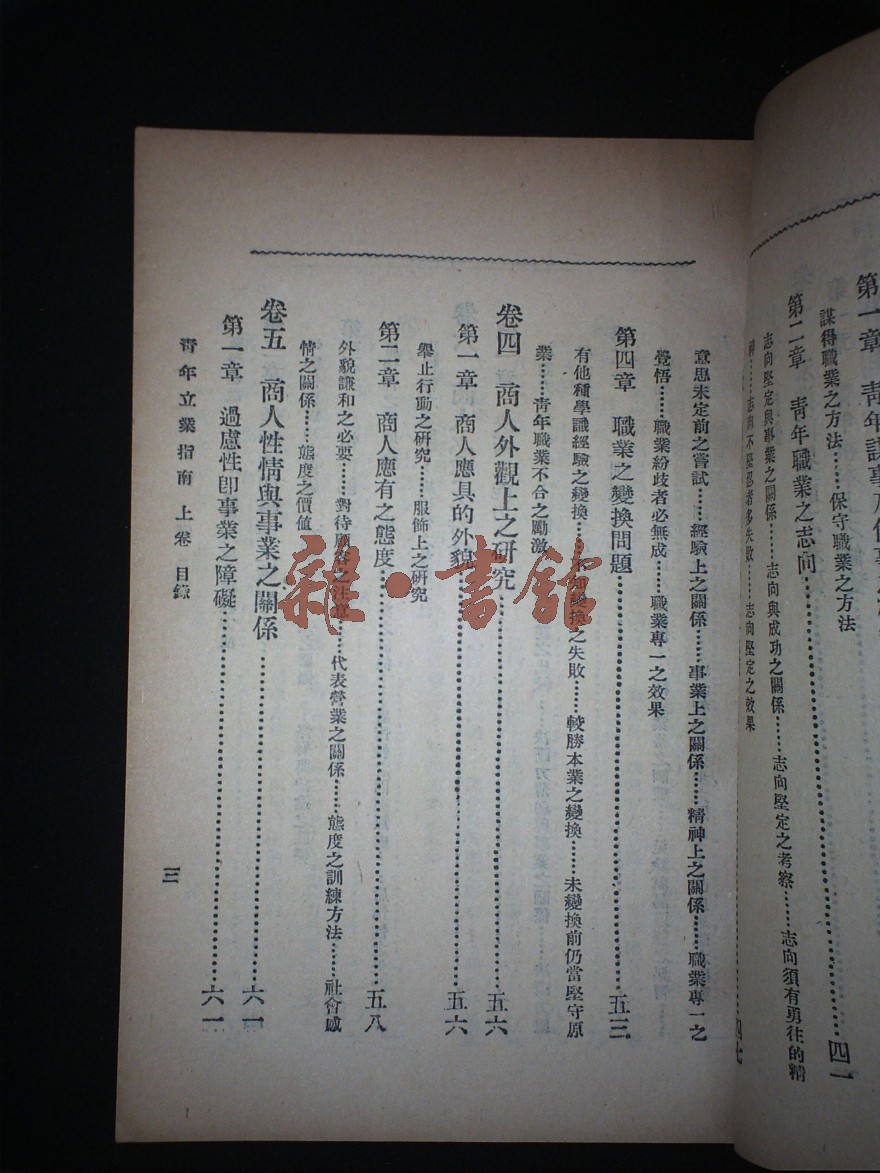 第一章　青年謀事及作事
謀得職業之方法……保守職業之方法
第二章　青年職業之志向……四一
志向堅定與事業之關係……志向與成功之關係……志向堅定之考察……志向須有勇往的精
神……志向不堅忍者多失敗……志向堅定之效果
四七
意思未定前之嘗試……經驗上之關係……事業上之關係……精神上之關係……職業專一之
覺悟……職業紛歧者必無成……職業專一之效果
第四章　職業之變換問題……五三
有他種學識經驗之變換……不知變換之失敗……較勝本業之變換……未變換前仍當堅守原
業……青年職業不合之勵激
卷四　商人外觀上之研究……五六
第一章　商人應具的外貌……五六
舉止行動之研究……服飾上之研究
第二章　商人應有之態度……五八
外貌謙和之必要……對待顧客之注意……代表營業之關係……態度之訓練方法……社會感
情之關係……態度之價値
卷五　商人性情與事業之關係……六一
第一章　過慮性卽事業之障礙……六一
青年立業指南　上卷　目錄
三
雜·書館